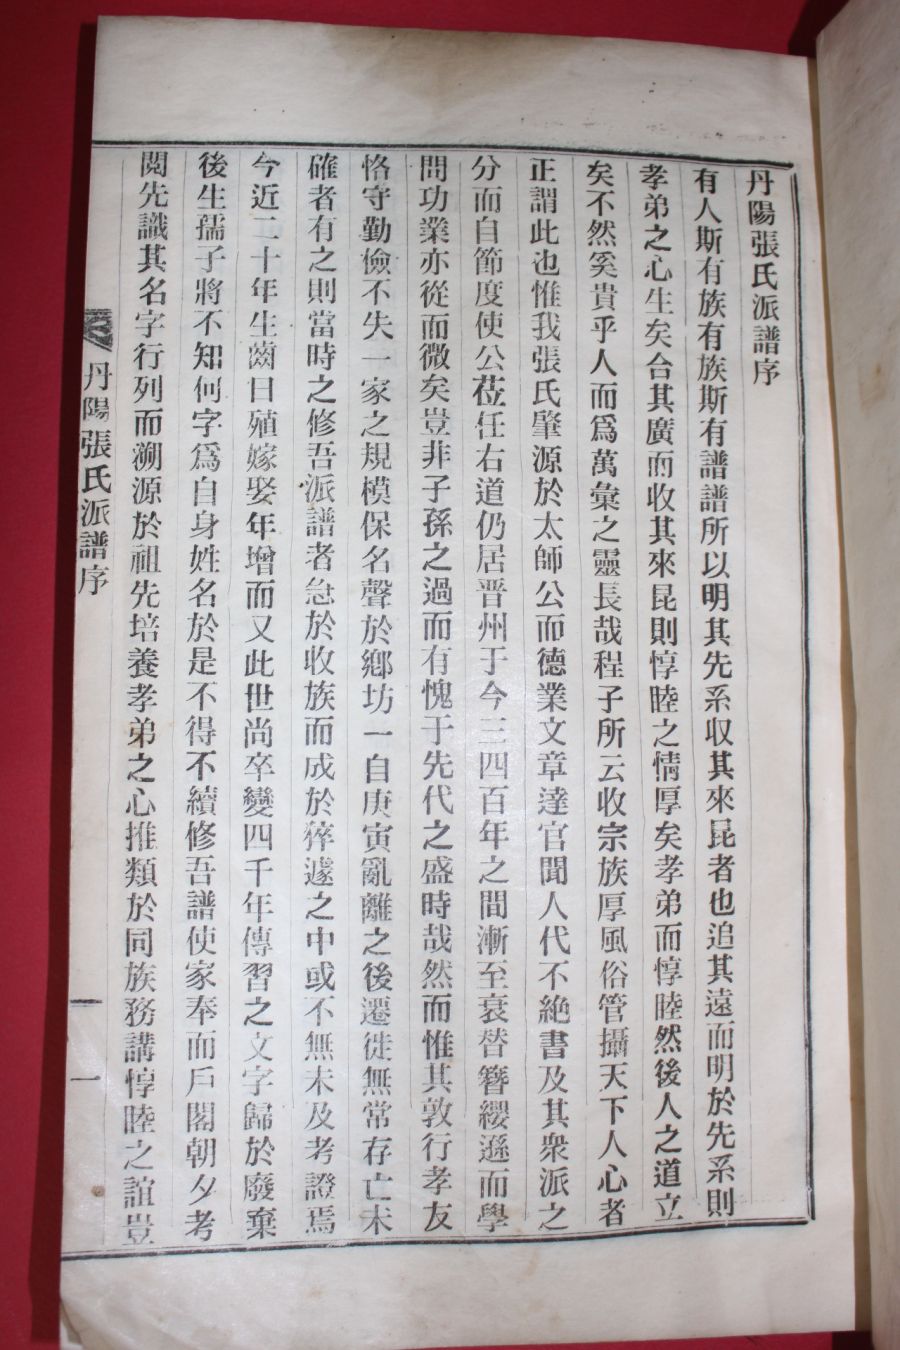 丹陽張氏派譜序
有人斯有族有族斯有譜譜所以明其先系収其來昆者也追其遠而明於先系則
孝弟之心生矣合其廣而收其來昆則惇睦之情厚矣孝弟而惇睦然後人之道立
矣不然奚貴乎人而爲萬彙之靈長哉程子所云收宗族厚風俗管攝天下人心者
正謂此也惟我張氏肇源於太師公而德業文章達官聞人代不絶書及其衆派之
分而自節度使公莅任右道仍居晋州于今三四百年之間漸至衰替簪纓遜而學
問功業亦從而微矣豈非子孫之過而有愧于先代之盛時哉然而惟其敦行孝友
恪守勤儉不失一家之規模保名聲於鄕坊一自庚寅亂離之後遷徙無常存亡未
確者有之則當時之修吾派譜者急於收族而成於猝遽之中或不無未及考證焉
今近二十年生齒日殖嫁娶年增而又此世尚卒變四千年傳習之文字歸於廢棄
後生孺子將不知何字爲自身姓名於是不得不續修吾譜使家奉而戶閣朝夕考
閱先識其名字行列而溯源於祖先培養孝弟之心推類於同族務講惇睦之誼豈
丹陽張氏派譜序
一